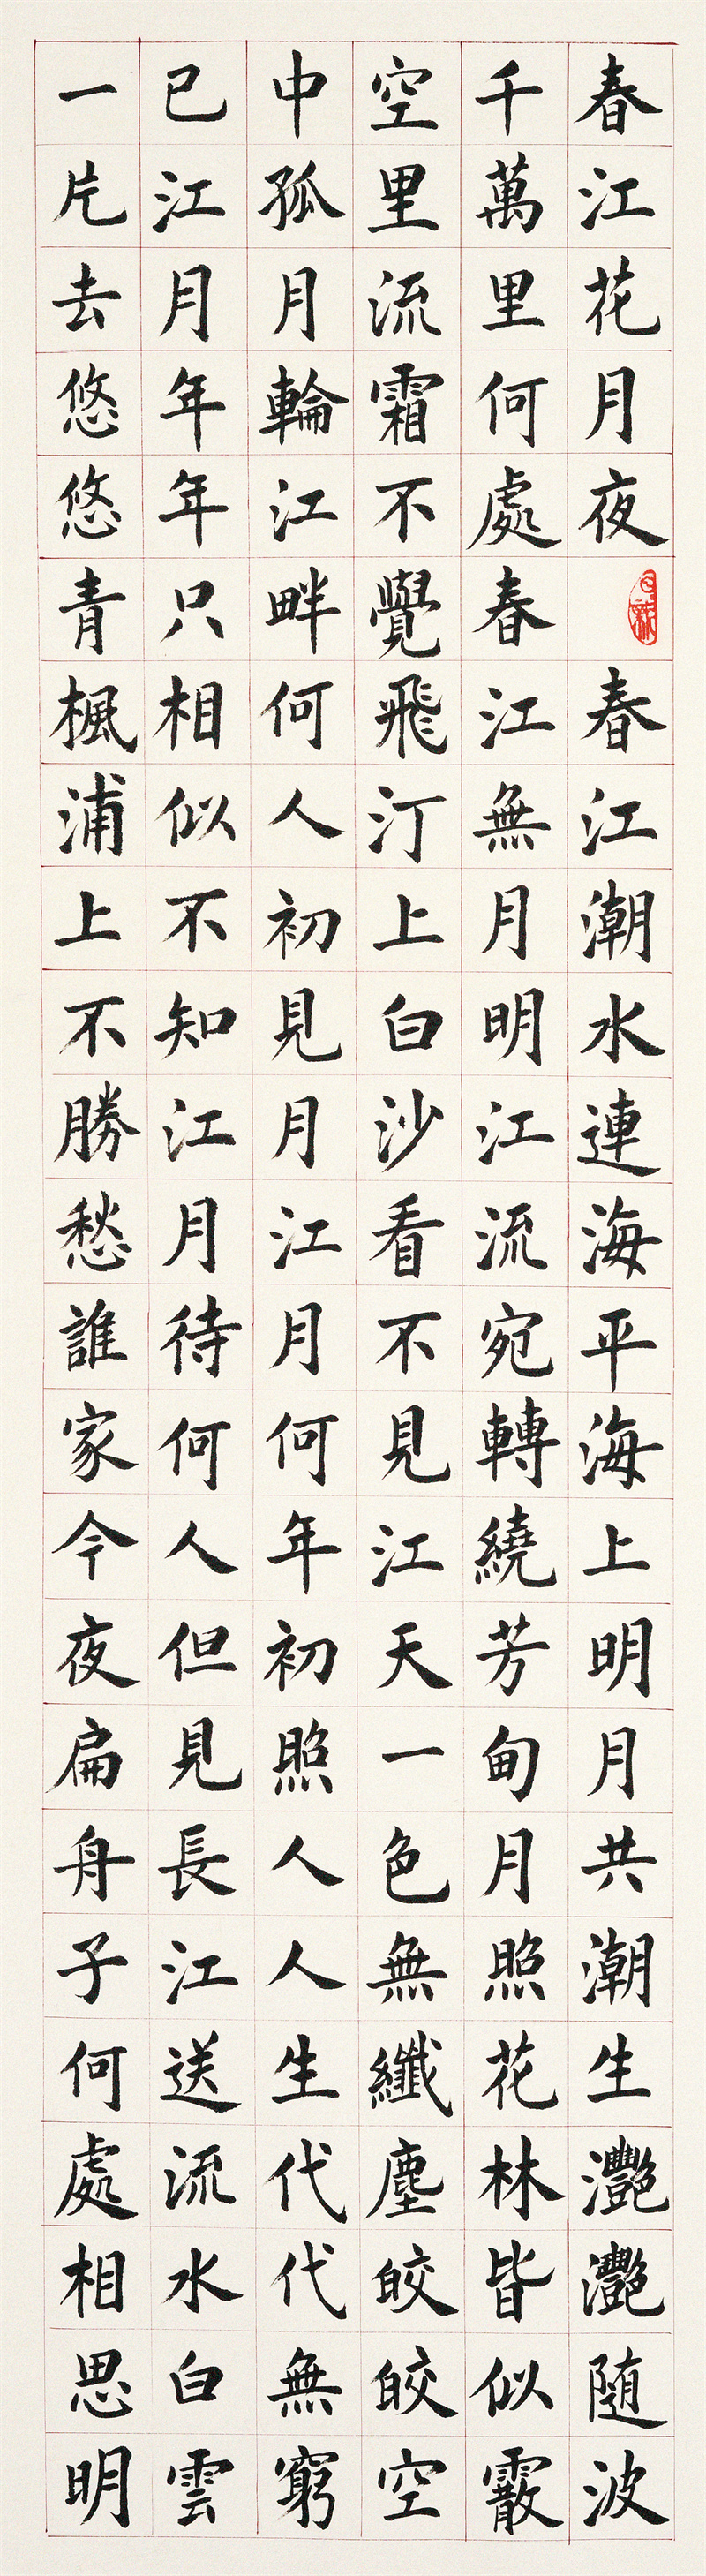 春江花月夜 春江潮水連海平海上明月共潮生灧灧随波
千萬里何處春江無月明江流宛轉繞芳甸月照花林皆似霰
空里流霜不覺飛汀上白沙看不見江天一色無纖塵皎皎空
中孤月輪江畔何人初見月江月何年初照人人生代代無窮
已江月年年只相似不知江月待何人但見長江送流水白雲
一片去悠悠青楓浦上不勝愁誰家今夜扁舟子何處相思明